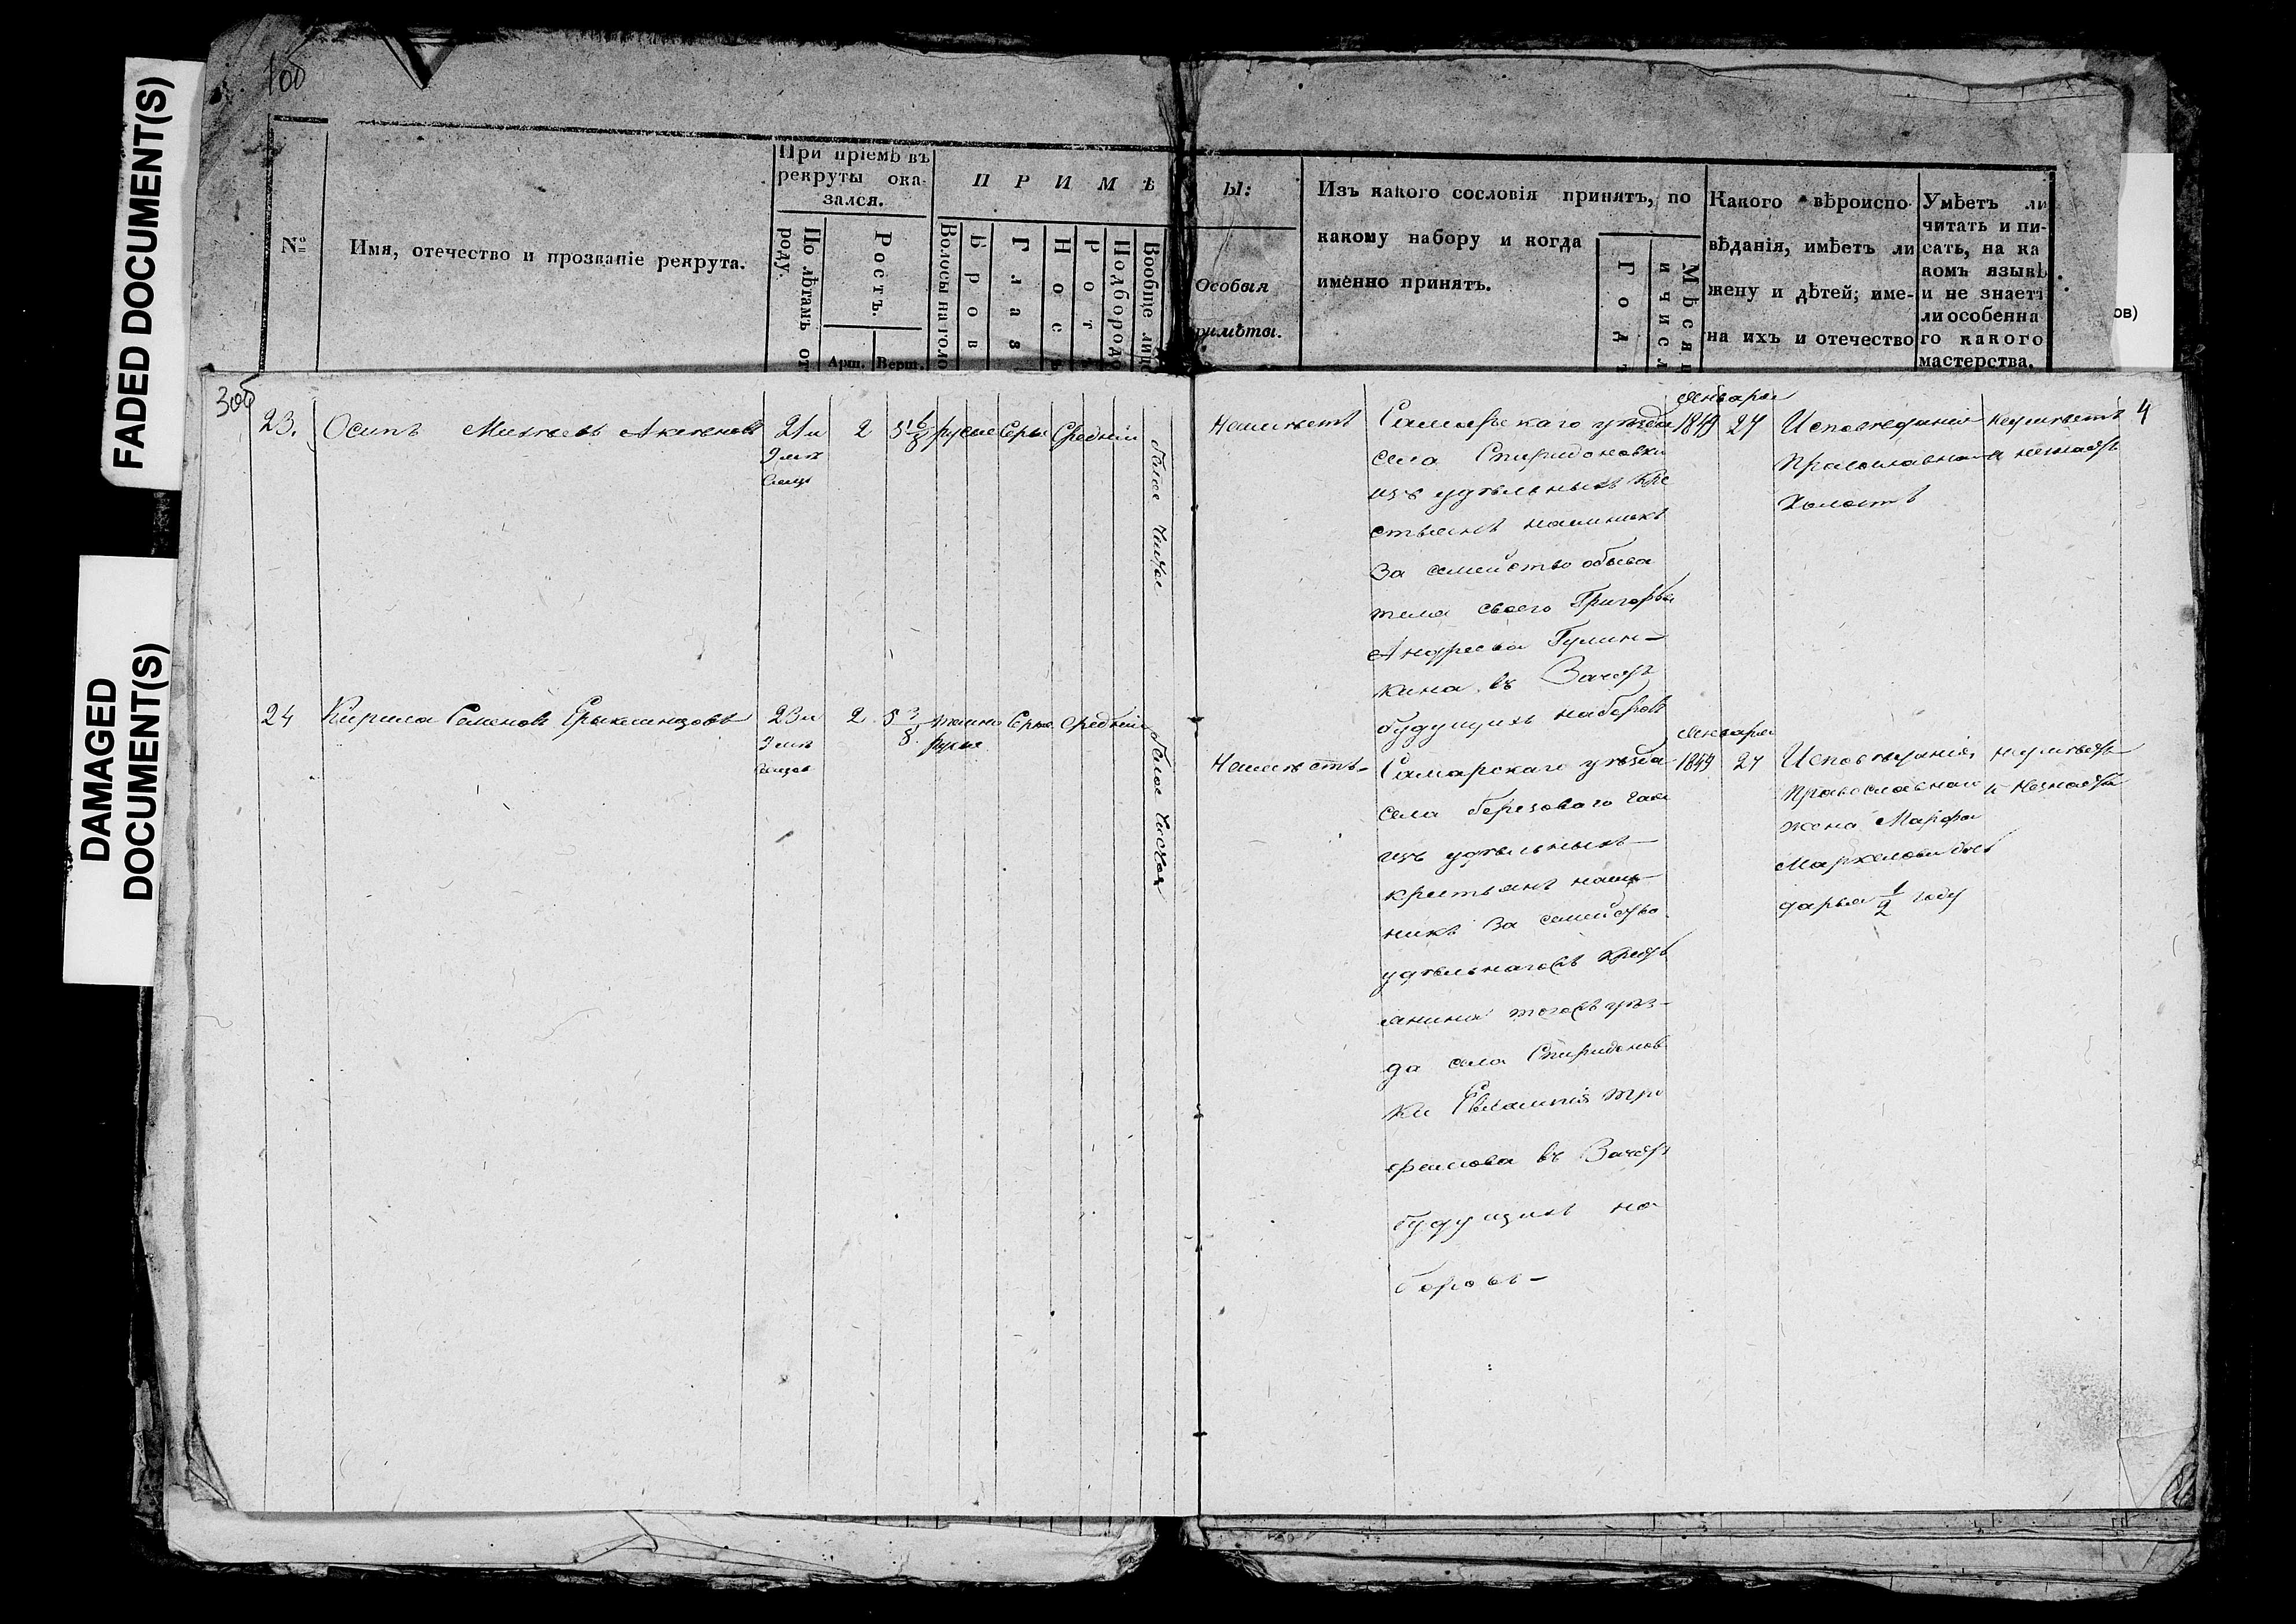 FADED DOCUMENT(S)
DAMAGED
DOCUMENT(S)
ов)
1об
№
Имя, отечество и прозваніе рекрута.
При пріемѣ въ
рекруты ока-
зался.
По лѣтамъ отъ
роду.
Ростъ.
Арш.
Верш.
П Р И М Ѣ
Волосы на голо
Бров
Глаз
Носъ
Рот
Подбородо
Вообще лиц
Ы:
Особыя
римѣты.
Изъ какого сословія принятъ, по
какому набору и когда
именно принятъ.
Год
Мѣсяц
и числ
Какого вѣроиспо-
вѣданія, имѣетъ ли
жену и дѣтей; име-
на ихъ и отечество
Умѣетъ ли
читать и пи-
сать, на ка
комъ языкѣ
и не знаетъ
ли особенна
го какого
мастерства.
3об
4
23. Осипъ Матвѣевъ Аксеновъ 21 и 2 5 6/8 русые Серые Средній
9 мѣ
сяцъ
белое чистое
Неимѣетъ
Самарскаго уѣзда
села Спиридоновки
изъ удѣльныхъ кре
стьянъ наемникъ
За семейство обыва
теля своего Григорья
Андреева Гулин-
кина въ Зачетъ
будущихъ наборовъ
Января
1849 24
Исповеданія
православнаго
холостъ
неумѣетъ
и незнаетъ
24 Кирила Семеновъ Ерыклинцовъ 23 и 2 5 3/8 темно Серые Средній
русые
3 мѣ
сяцов
белое чистое
Неимѣетъ
Самарскаго уѣзда
села березоваго гая
изъ удѣльныхъ
крестьянъ наем-
никъ За семейство
удѣльнагожъ крест
янина тогожъ уѣз-
да села Спиридонов
ки Евлампія Тро
фимова въ Зачетъ
будущихъ на
боровъ
Января
1849 24
Исповеданія
православнаго
жена Марфа
Маркелова дочь
дарья 1/2 году
неумѣетъ
и незнаетъ